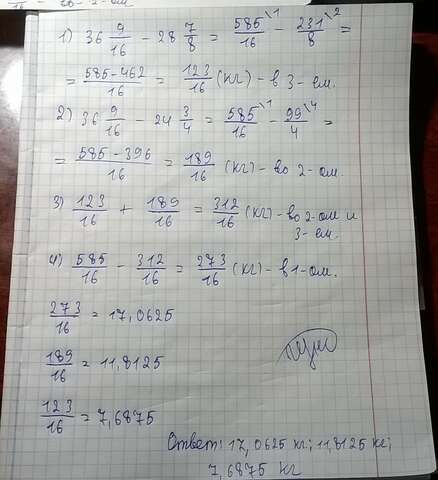 1) 36 9/16 - 28 7/8 = 585\1/16 - 231\2/8 =
= 585-462/16 = 123/16 (кг) - в 3-ем.
2) 36 9/16 - 24 3/4 = 585\1/16 - 99\4/4 =
= 585-396/16 = 189/16 (кг) - во 2-ом
3) 123/16 + 189/16 = 312/16 (кг) - во 2-ом и
3-ем.
4) 585/16 - 312/16 = 273/16 (кг) - в 1-ом.
273/16 = 17,0625
189/16 = 11,8125
123/16 = 7,6875
Ответ: 17,0625 кг; 11,8125 кг;
7,6875 кг